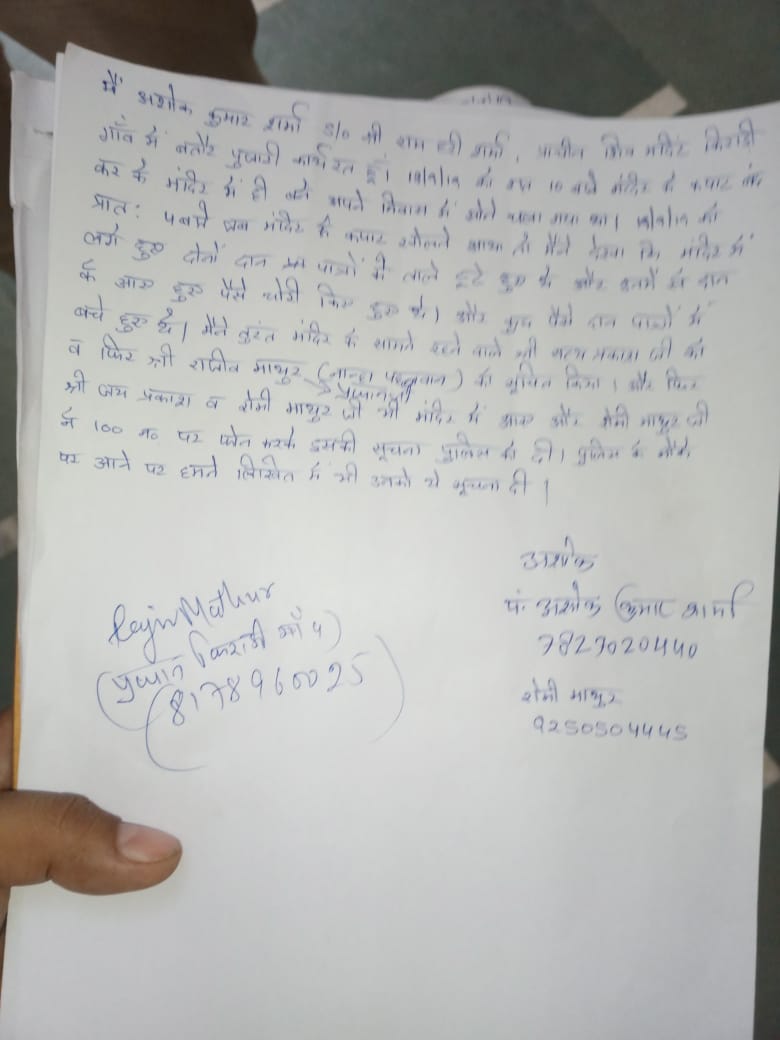 मैं अशोक कुमार शर्मा S/o श्री राम हरी शर्मा, प्राचीन शिव मंदिर किराड़ी
गाँव में बतौर पुजारी कार्यरत हूं। को रात 10 बजे मंदिर के कपाट बंद
कर के मंदिर में ही बने अपने निवास में सोने चला गया था। को
प्रातः 4 बजे जब मंदिर के कपाट खोलने आया तो मैंने देखा कि मंदिर में
लगे हुए दोनों दान पात्रों के ताले टूटे हुए थे और उनमें से दान
के आए हुए पैसे चोरी किए हुए थे। और कुछ पैसे दान पात्रों में
बचे हुए थे। मैंने तुरंत मंदिर के सामने रहने वाले श्री सत्य प्रकाश जी को
व फिर श्री राजीव माथुर (नान्हा पहलवान) को सूचित किया। और फिर
प्रधान जी
श्री जय प्रकाश व शैमी माथुर जी भी मंदिर में आए और शैमी माथुर जी
ने 100 no पर फोन करके इसकी सूचना पुलिस को दी। पुलिस के मौके
पर आने पर हमने लिखित में भी उनको ये सूचना दी।
अशोक
पं. अशोक कुमार शर्मा
7827020440
Rajiv Mathur
(प्रधान किराड़ी गाँव)
(8178960025)
शैमी माथुर
9250504445